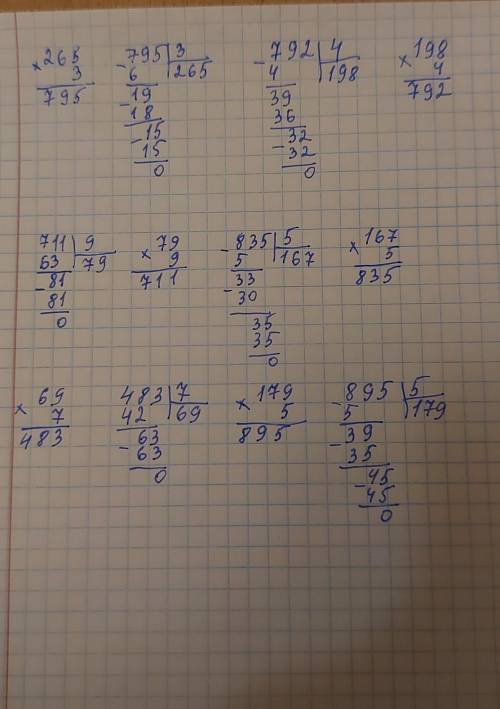 × 265
3
795
- 795 3
6 265
- 19
18
- 15
15
0
- 792 4
4 198
39
36
- 32
32
0
× 198
4
792
711 9
63 79
- 81
81
0
× 79
9
711
- 835 5
5 167
- 33
30
35
35
0
× 167
5
835
× 69
7
483
483 7
42 69
- 63
63
0
× 179
5
895
- 895 5
5 179
- 39
35
- 45
45
0